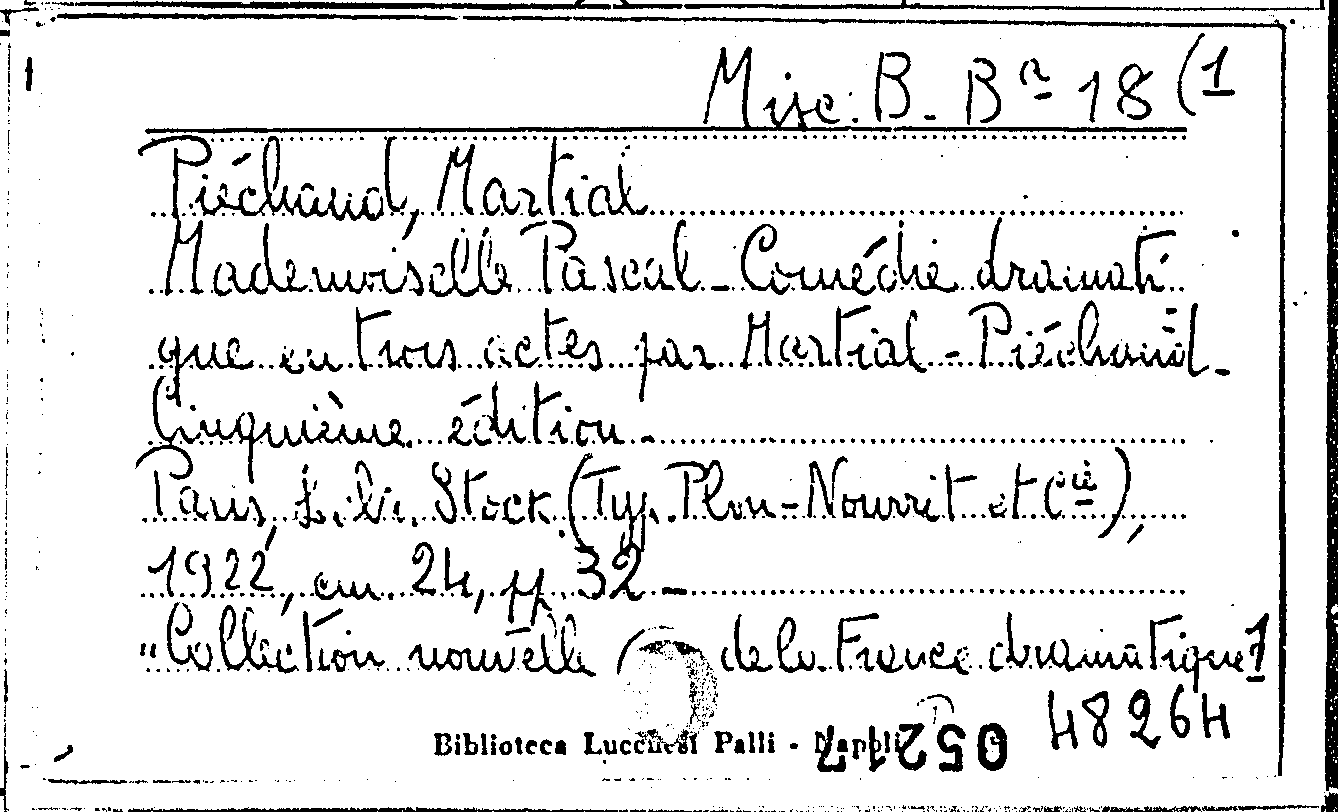 Misc. B. Bª 18 (1
Piéchaud, Martial
Mademoiselle Pascal - Comédie dramati
que en trois actes par Martial - Piéchaud -
Cinquième édition -
Paris, Libr. Stock (Typ. Plon-Nourrit et Cie),
1922, cm. 24, pp. 32 -
"Collection nouvelle de la France dramatique 1
48264
Biblioteca Lucchesi Palli - Napoli